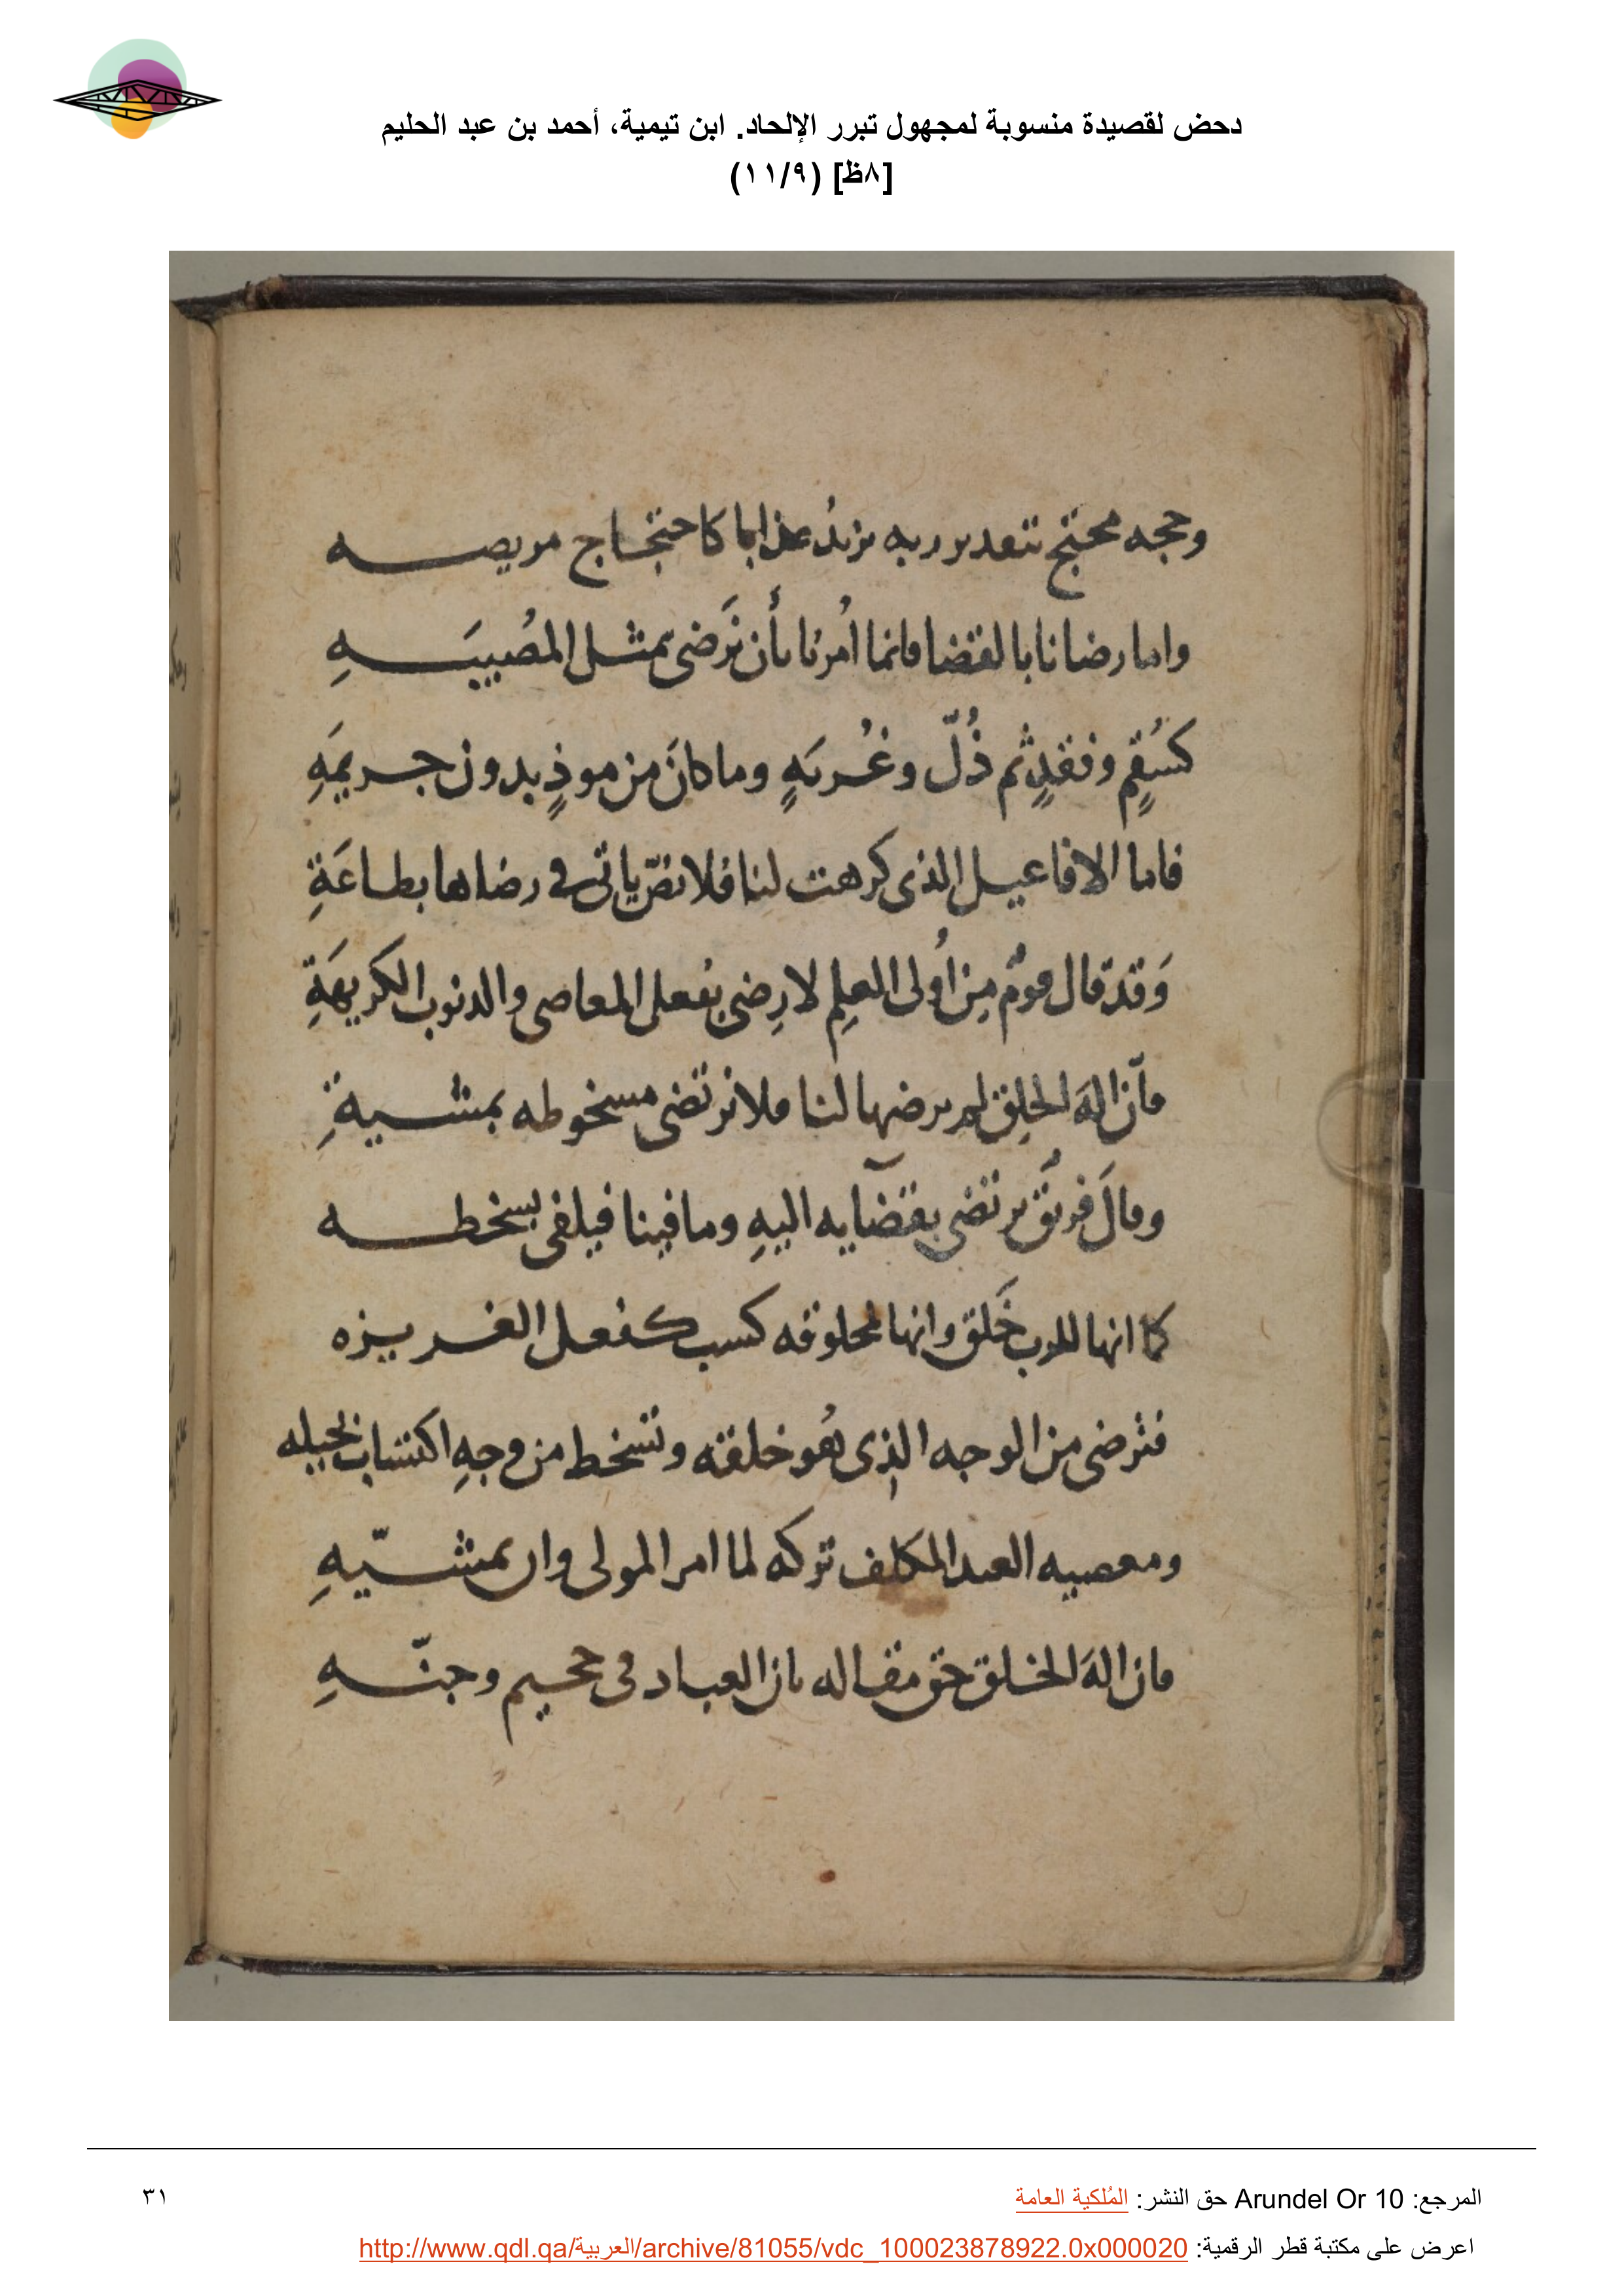 دحض لقصيدة منسوبة لمجهول تبرر الإلحاد. ابن تيمية، أحمد بن عبد الحليم
[٨ظ] (١١/٩)
وحجه محتج بتقدير ربه يزيدُ عذابا كاحتجاج مريضه
واما رضانا بالقضا فانما اُمرنا بأن نَرضى بمثل المُصيبَهِ
كسُقمٍ وفقدٍ ثم ذُلّ وغُربَهٍ وما كانَ من موذٍ بدون جريمَهِ
فاما الافاعيل الذى كرهت لنا فلا نصّ ياتى في رضاها بطاعَةِ
وَقد قال قومٌ مِن اُولى العِلم لا رِضى بفعل المعاصى والدنوب الكريهَةِ
فاّن الهَ الخلِق لم يرضها لنا فلا نرتضى مسخوطه بمشيةِ
وقالَ فريقٌ نرتضى بقضآيه اليهِ وما فينا فيلقى بسخطه
كما انها للرب خَلق وانها لمخلوقه كسب كفعل الغريزه
فنرضى من الوجه الذِى هُو خلقته ونسخط من وجهِ اكتساب بحيله
ومعصيه العبد المكلف تركه لما امر المولى وان بمشيّهِ
فان الهَ الخلق حق مقاله بان العباد فى جحيم وجنّهِ
المرجع: Arundel Or 10 حق النشر: المُلكية العامة
٣١
اعرض على مكتبة قطر الرقمية: http://www.qdl.qa/العربية/archive/81055/vdc_100023878922.0x000020